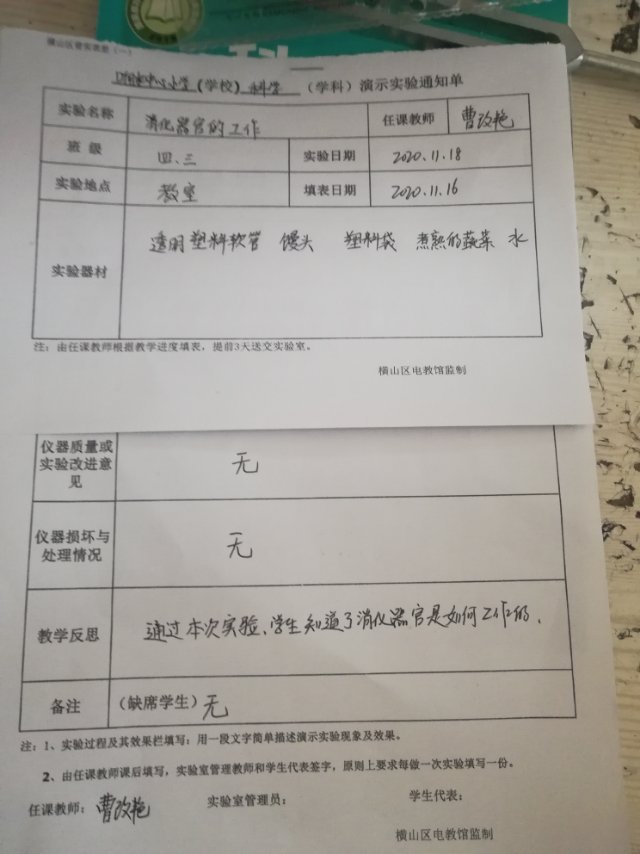 横山区
(一)
中心小学(学校) 科学 (学科)演示实验通知单
实验名称 消化器官的工作 任课教师 曹改艳
班 级 四、三 实验日期 2020.11.18
实验地点 教室 填表日期 2020.11.16
实验器材 透明塑料软管 馒头 塑料袋 煮熟的蔬菜 水
注:由任课教师根据教学进度填表,提前3天送交实验室。
横山区电教馆监制
仪器质量或
实验改进意
见
无
仪器损坏与
处理情况
无
教学反思 通过本次实验、学生知道了消化器官是如何工作的.
备注 (缺席学生)无
注:1、实验过程及其效果栏填写:用一段文字简单描述演示实验现象及效果。
2、由任课教师课后填写,实验室管理教师和学生代表签字,原则上要求每做一次实验填写一份。
任课教师:曹改艳 实验室管理员: 学生代表:
横山区电教馆监制